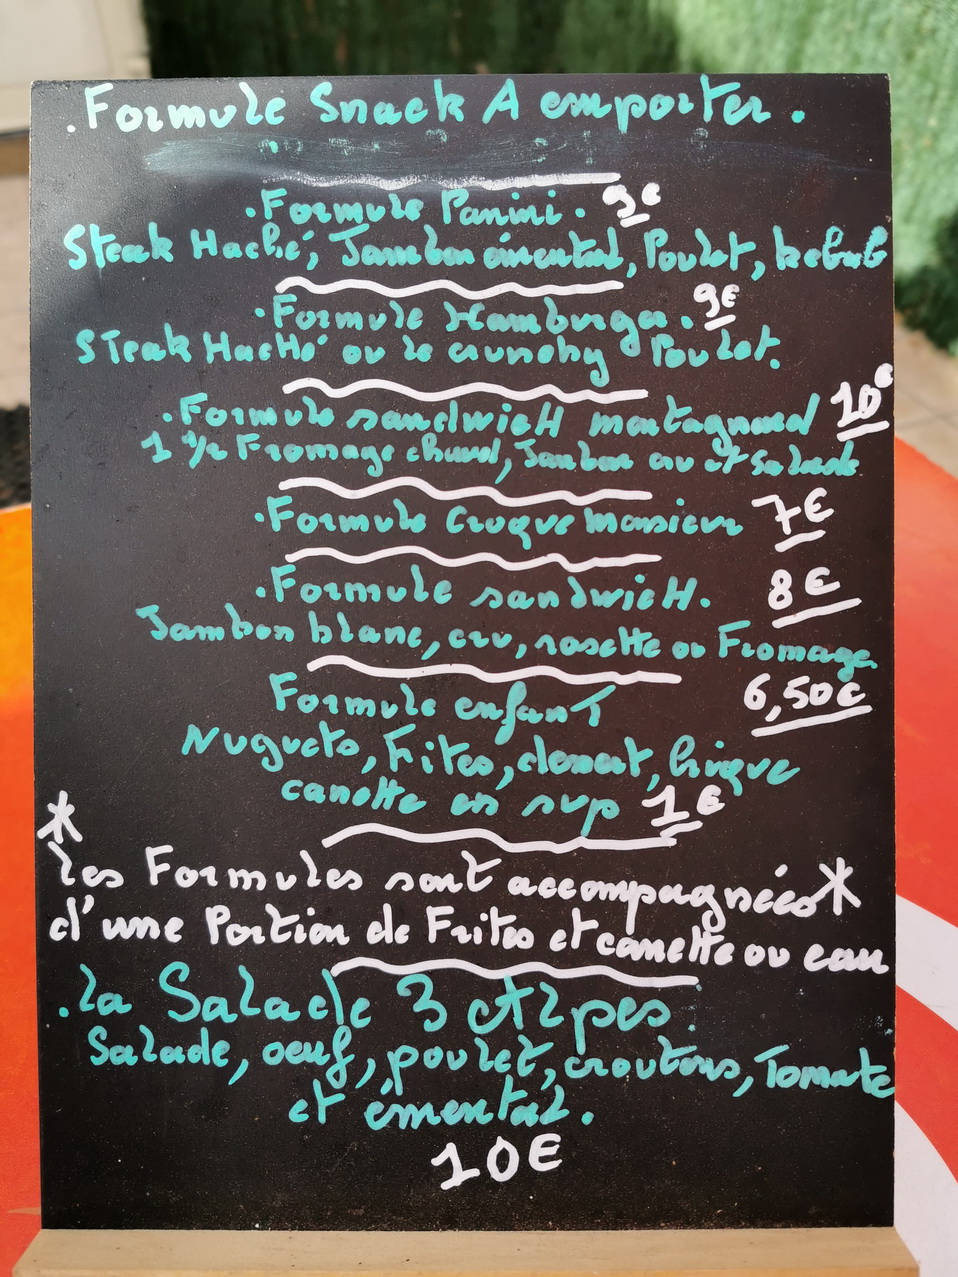 .Formule Snack A emporter.
.Formule Panini. 9€
Steak Haché, Jambon émental, Poulet, kebab
.Formule Hamburger. 9€
STeak HacHé ou le crunchy Poulet.
.Formule sandwicH montagnard 10€
1 1/2 Fromage chaud, Jambon cru et Salade
.Formule Croque Monsieur 7€
.Formule sandwicH. 8€
Jambon blanc, cru, rosette ou Fromage
Formule enfanT 6,50€
Nuguets, Frites, clement, livque
canette en sup 1€
* Les Formules sont accompagnées *
d'une Portion de Frites et canette ou eau
.La Salade 3 Alpes.
Salade, oeuf, poulet, croutons, Tomate
et émental.
10€